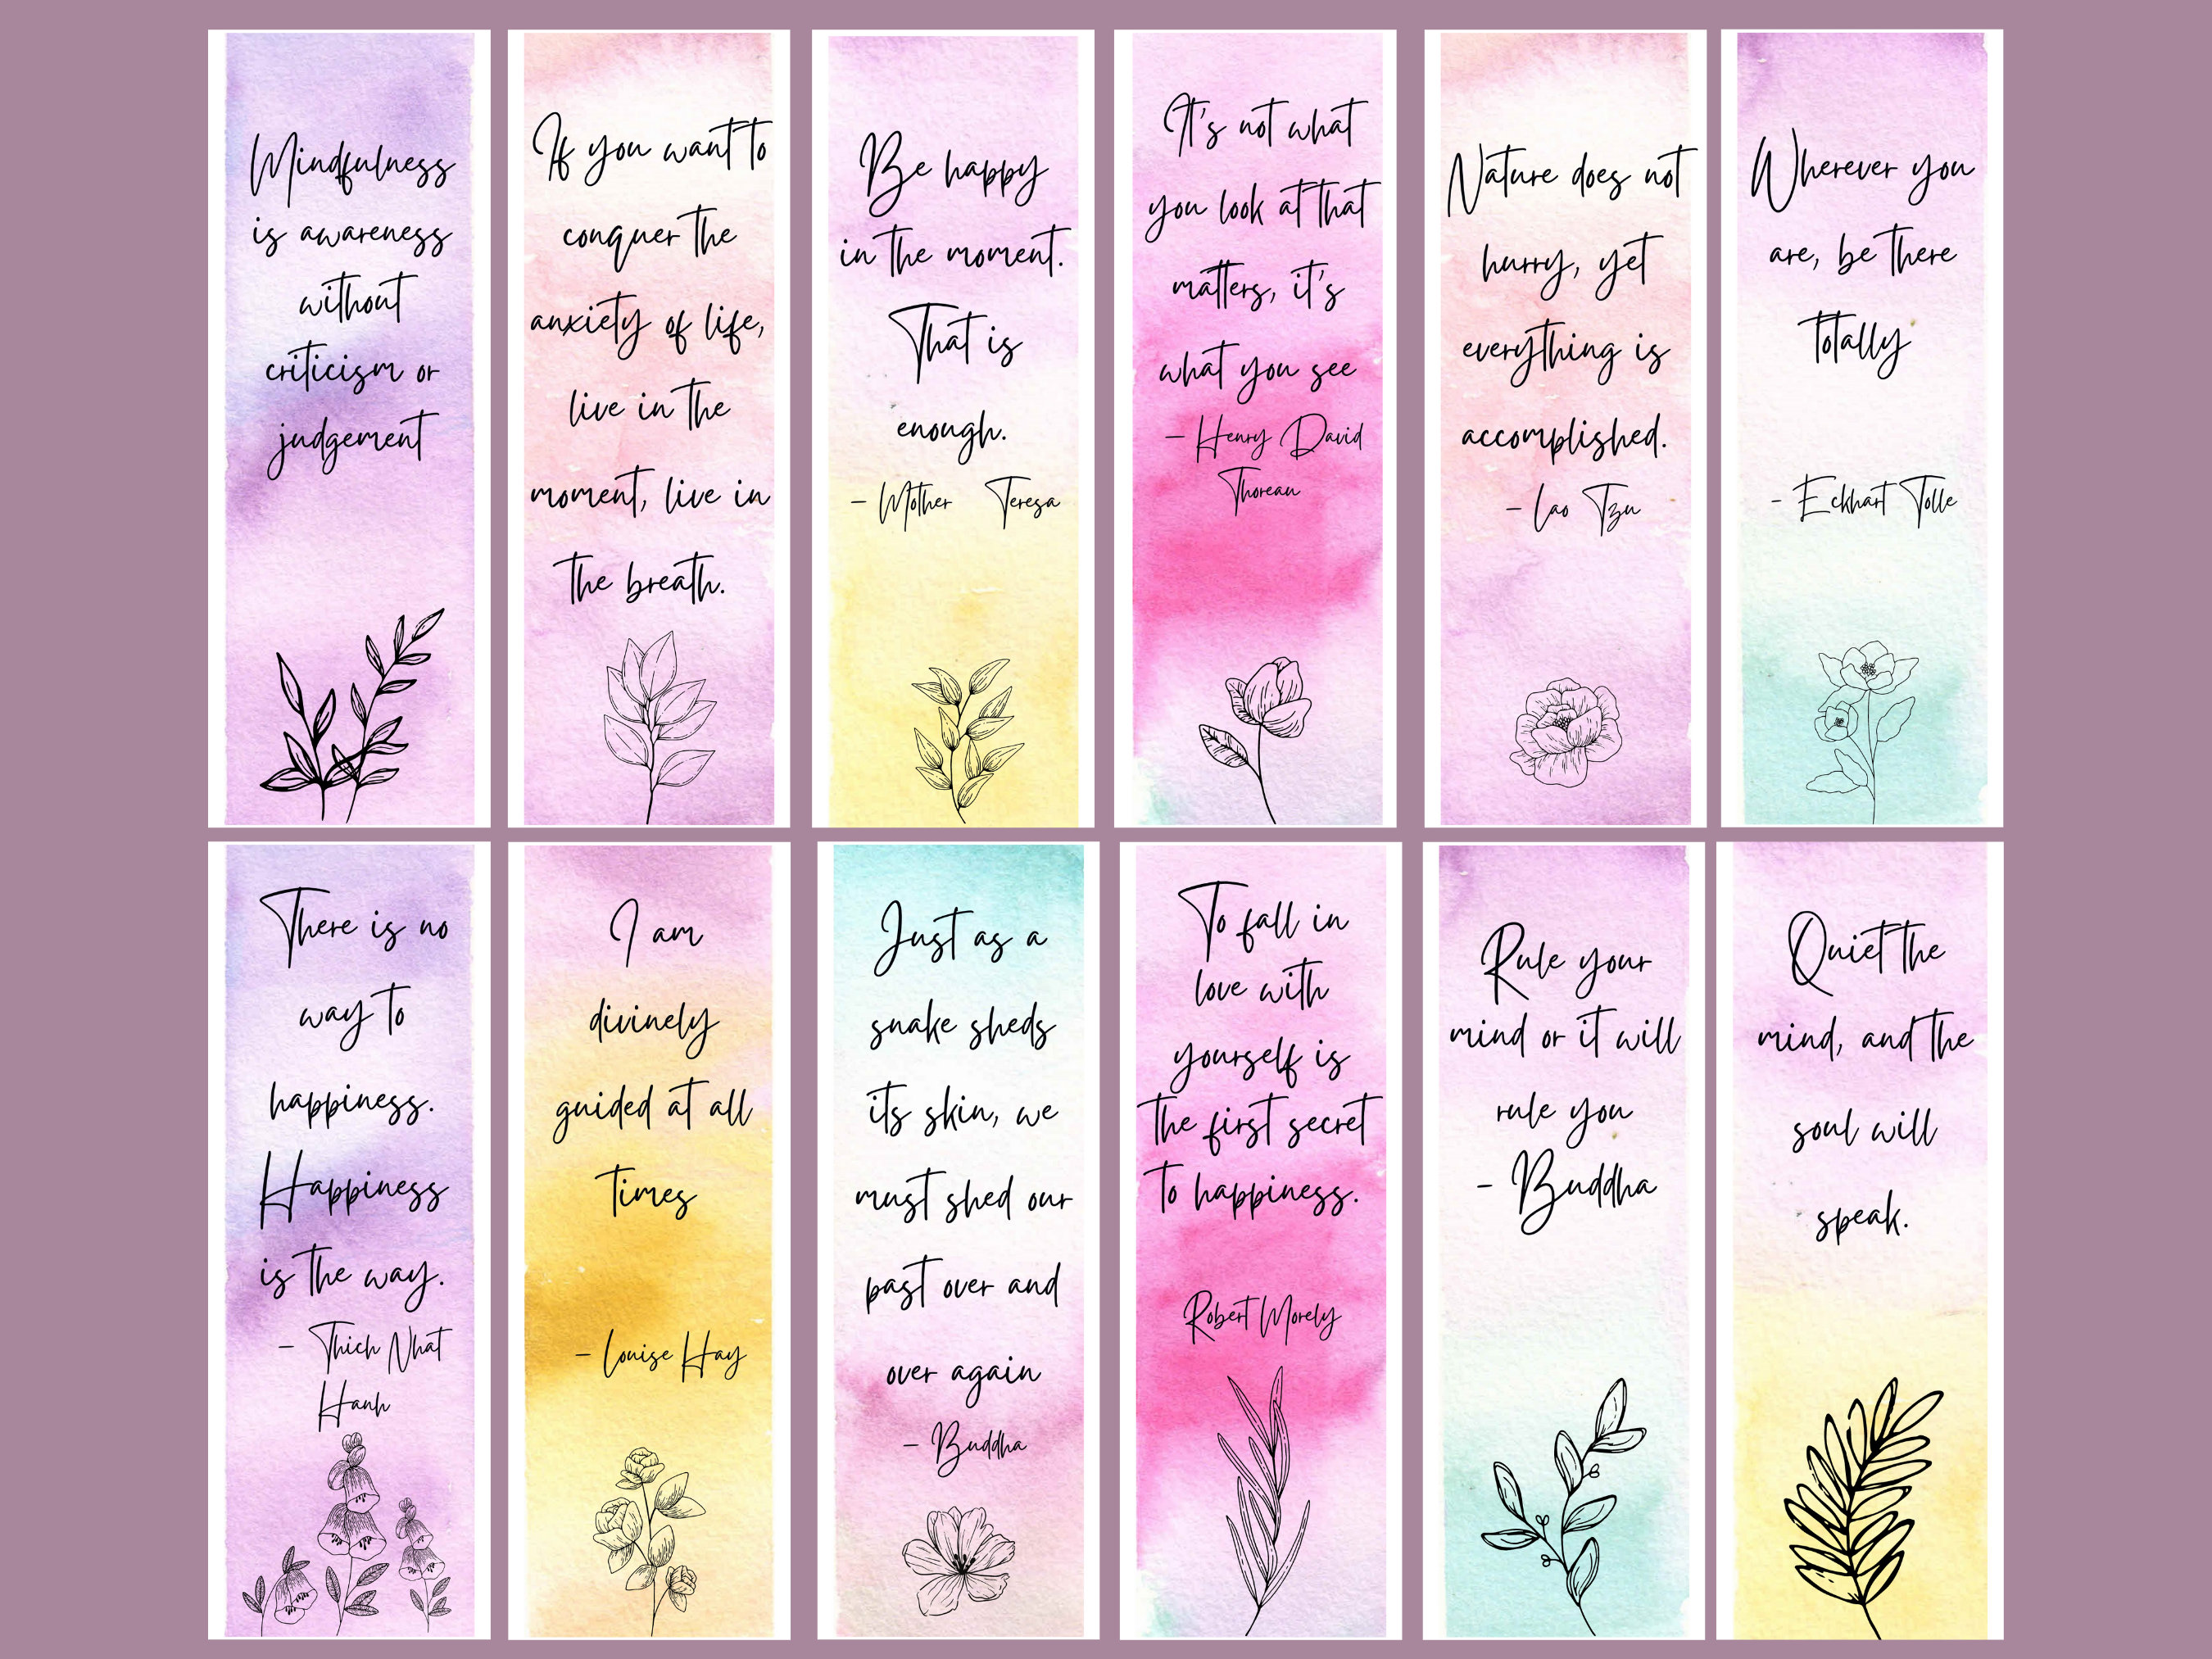 Mindfulness
is awareness
without
criticism or
judgement
If you want to
conquer the
anxiety of life,
live in the
moment, live in
the breath.
Be happy
in the moment.
That is
enough.
- Mother Teresa
It's not what
you look at that
matters, it's
what you see
- Henry David
Thoreau
Nature does not
hurry, yet
everything is
accomplished.
- Lao Tzu
Wherever you
are, be there
totally
- Eckhart Tolle
There is no
way to
happiness.
Happiness
is the way.
- Thich Nhat
Hanh
I am
divinely
guided at all
times
- Louise Hay
Just as a
snake sheds
its skin, we
must shed our
past over and
over again
- Buddha
To fall in
love with
yourself is
the first secret
to happiness.
Robert Morely
Rule your
mind or it will
rule you
- Buddha
Quiet the
mind, and the
soul will
speak.